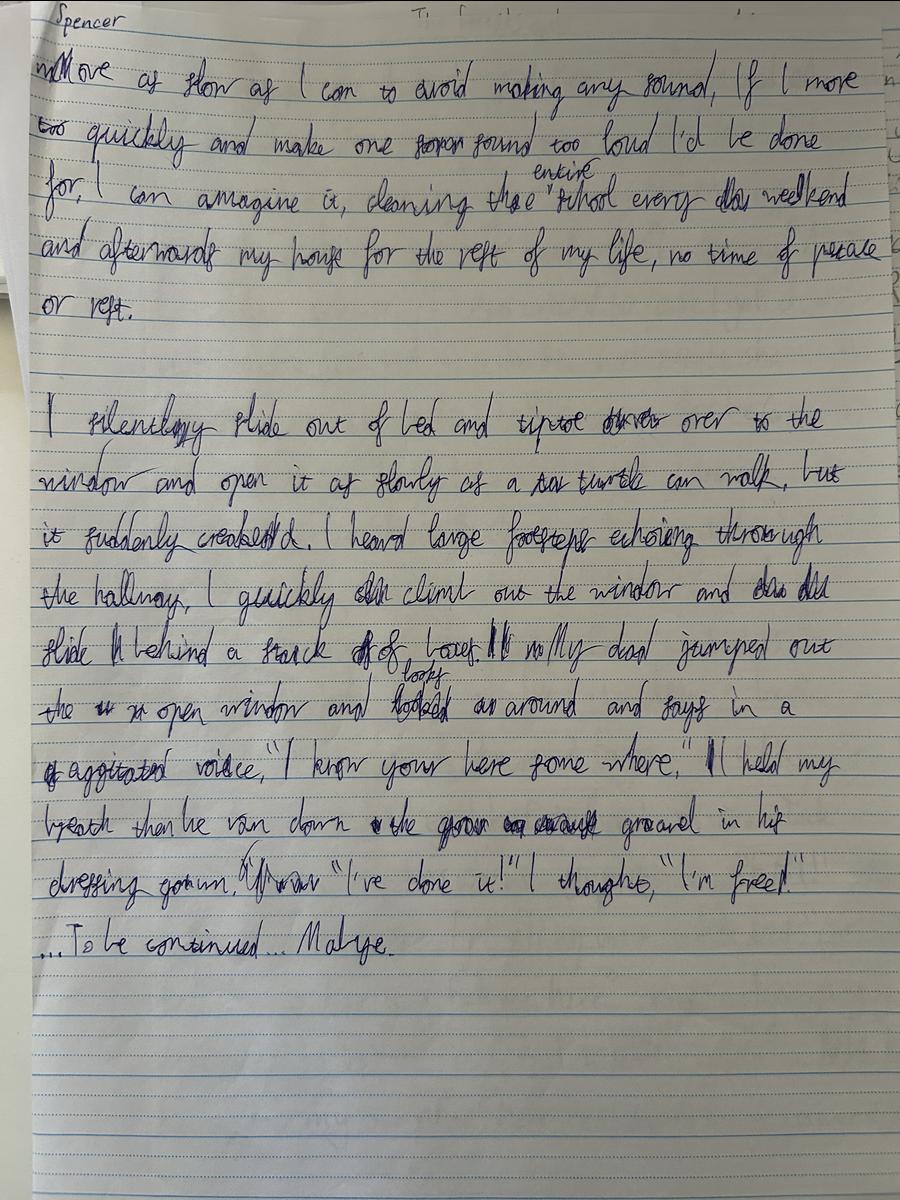 Spencer
Move as slow as I can to avoid making any sound, If I move
quickly and make one sound too loud I'd be done
entire
for, I can amagine it, cleaning the school every weekend
and afterwards my house for the rest of my life, no time of peace
or rest.
I silently slide out of bed and tiptoe over to the
window and open it as slowly as a turtle can walk, but
it suddenly creaked. I heard large footsteps echoing through
the hallway, I quickly climb out the window and
slide behind a stack of boxes. My dad jumped out
looks
the open window and around and says in a
aggitated voice, "I know your here some where," I held my
breath then he ran down the ground in his
dressing gown. "I've done it!" I thought, "I'm free!"
...To be continued... Mabye.